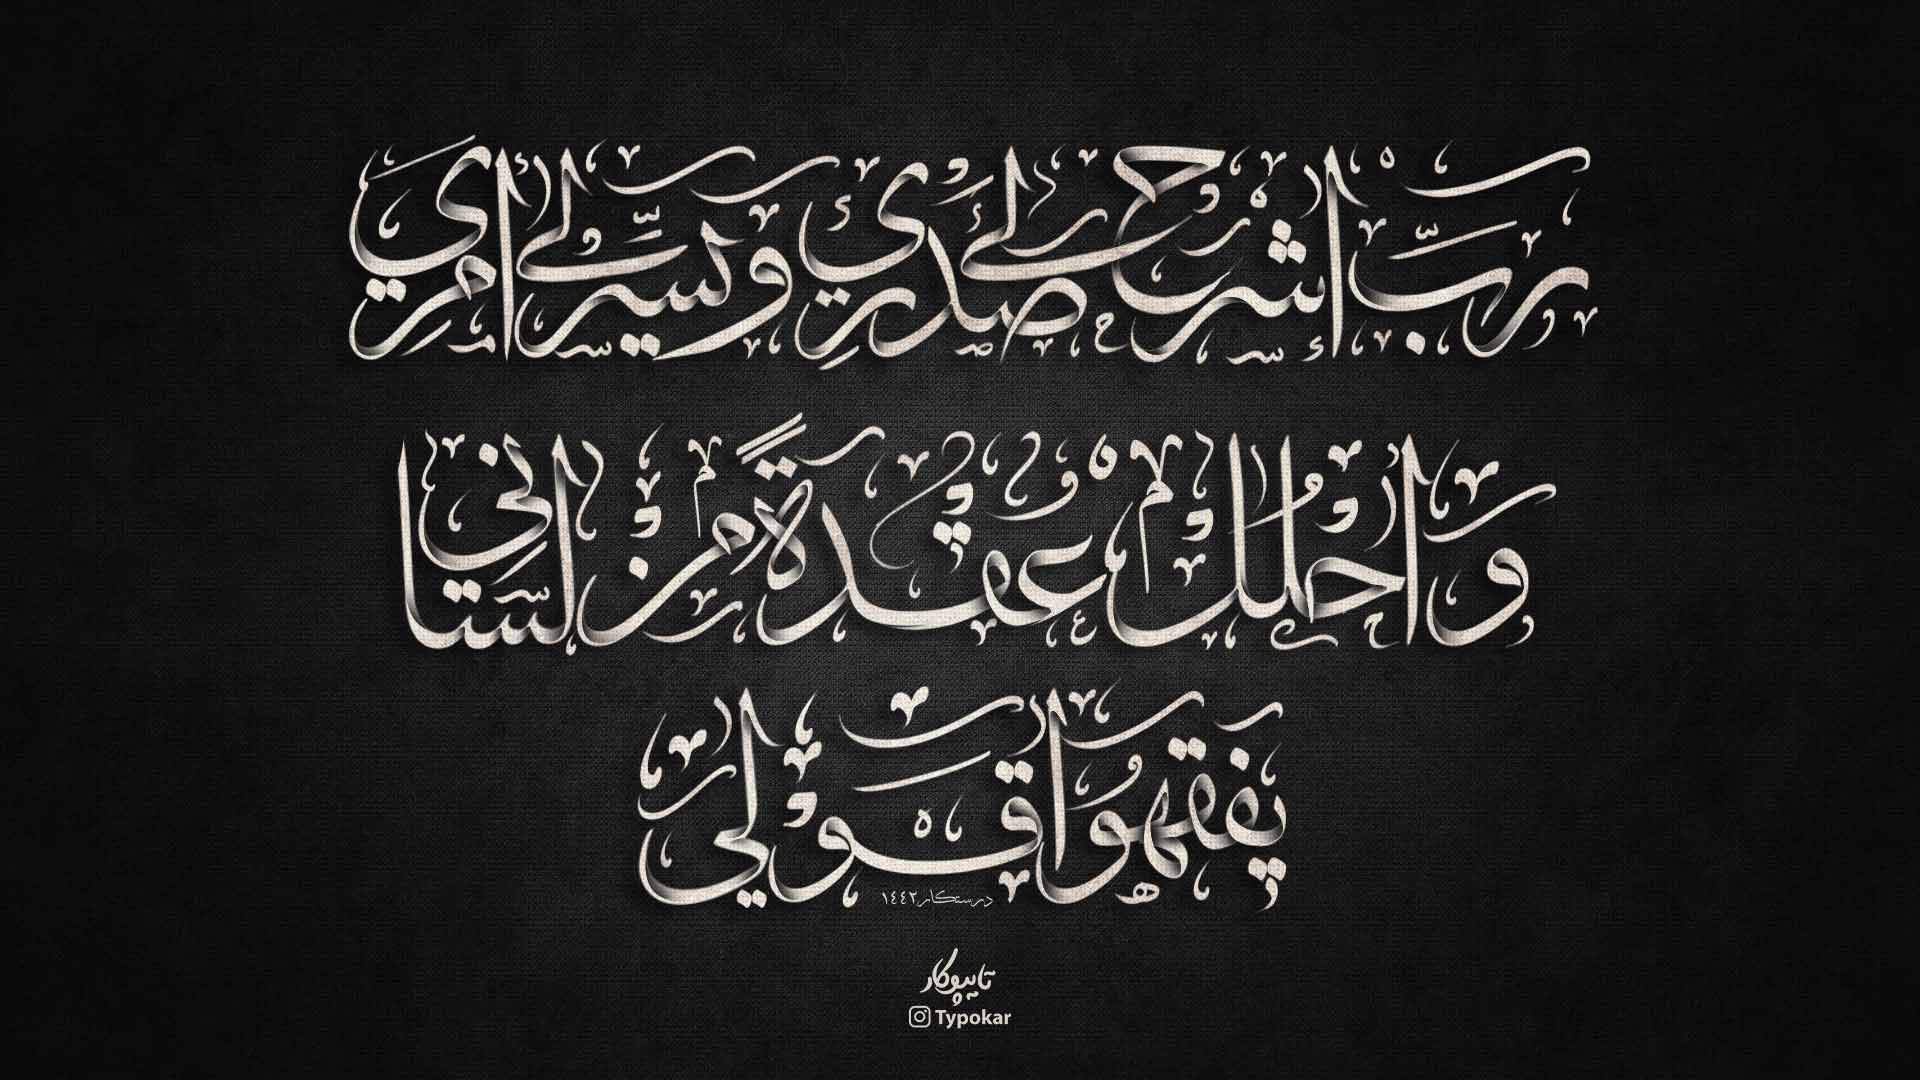 رَبِّ اشْرَحْ لِي صَدْرِي وَيَسِّرْ لِي أَمْرِي
وَاحْلُلْ عُقْدَةً مِنْ لِسَانِي
يَفْقَهُوا قَوْلِي
درستکار ١٤٤٢
تایپوکار
Typokar